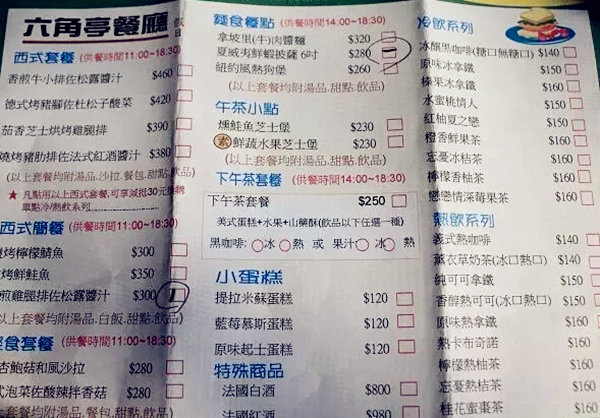 六角亭餐廳 假日
西式套餐 (供餐時間11:00~18:30)
香煎牛小排佐松露醬汁 $460
德式烤豬腳佐杜松子酸菜 $420
茄香芝士烘烤雞腿排 $390
燒烤豬肋排佐法式紅酒醬汁 $380
(以上套餐均附湯品,沙拉,餐包,甜點,飲品)
★ 凡點用以上西式套餐,可享減抵30元
單點冷/熱飲系列
西式簡餐 (供餐時間11:00~18:30)
烤檸檬鯖魚 $300
烤鮮鮭魚 $350
煎雞腿排佐松露醬汁 $300
以上套餐均附湯品,白飯,甜點,飲品)
輕食套餐 (供餐時間11:00~18:30)
杏鮑菇和風沙拉 $280
式泡菜佐酸辣拌香菇 $280
套餐均附湯品,餐包,甜點,飲品)
麵食餐點 (供餐時間14:00~18:30)
拿坡里(牛)肉醬麵 $320
夏威夷鮮蝦披薩 6吋 $280
紐約風熱狗堡 $260
(以上套餐均附湯品,甜點,飲品)
午茶小點
燻鮭魚芝士堡 $230
素 鮮蔬水果芝士堡 $230
(以上套餐均附湯品,甜點,飲品)
下午茶套餐 (供餐時間14:00~18:30)
下午茶套餐 $250
美式蛋糕+水果+山藥酥(飲品以下任選一種)
黑咖啡: 冰 熱 或 果汁 冰 熱
小蛋糕
提拉米蘇蛋糕 $120
藍莓慕斯蛋糕 $120
原味起士蛋糕 $120
特殊商品
法國白酒 $800
法國紅酒 $980
冷飲系列
冰釀黑咖啡(糖口無糖口) $140
原味冰拿鐵 $150
榛果冰拿鐵 $160
水蜜桃情人 $150
紅柚夏之戀 $150
橙香鮮果茶 $160
忘憂冰桔茶 $160
檸檬香柚茶 $160
戀戀情深莓果茶 $160
熱飲系列
義式熱咖啡 $140
薰衣草奶茶(冰口熱口) $140
純可可拿鐵 $150
香醇熱可可(冰口熱口) $150
原味熱拿鐵 $160
熱卡布奇諾 $160
檸檬熱柚茶 $160
忘憂熱桔茶 $160
桂花蜜棗茶 $160